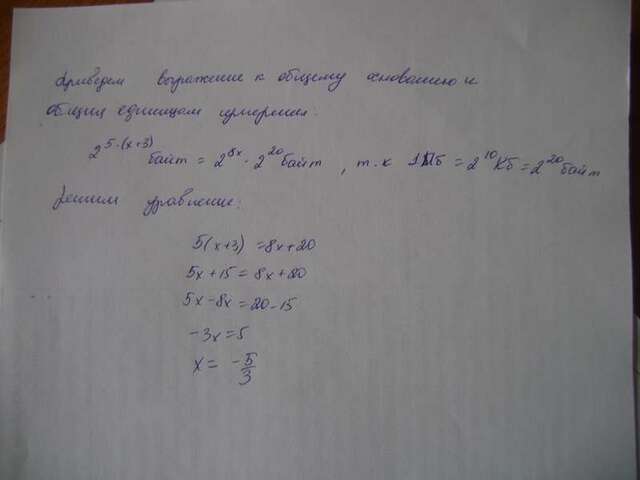 Приведем выражение к общему основанию и
общим единицам измерения:
2^5·(x+3) байт = 2^8x · 2^20 байт , т.к 1Мб = 2^10 Кб = 2^20 байт
Решим уравнение:
5(x+3) = 8x+20
5x+15 = 8x+20
5x-8x = 20-15
-3x=5
x= -5/3